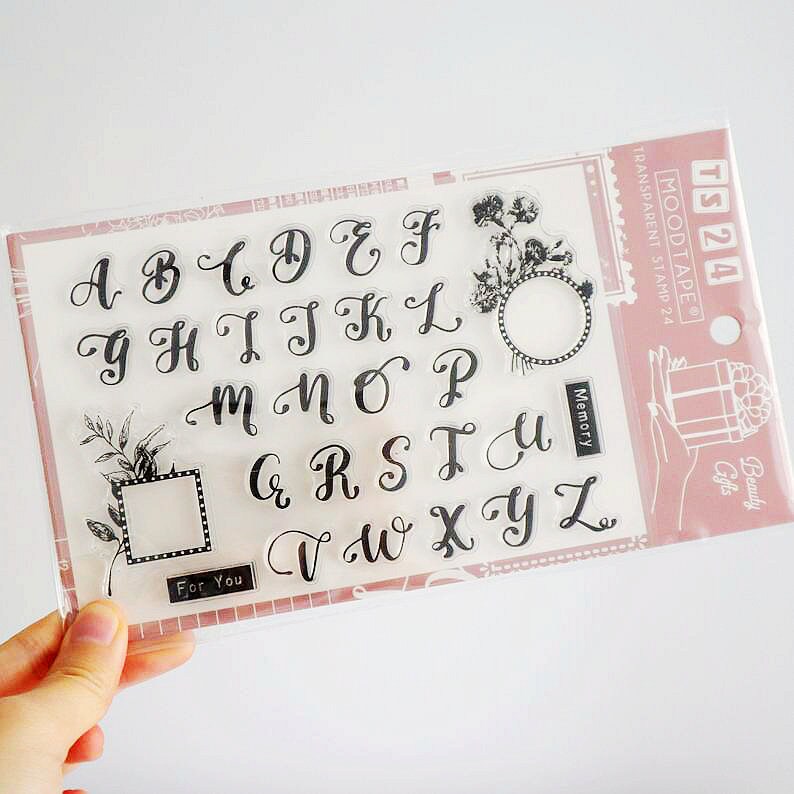 A B C D E F
G H I J K L
M N O P
Q R S T U
V W X Y Z
Memory
For You
TS24
MOODTAPE®
TRANSPARENT STAMP 24
Beauty
Gifts